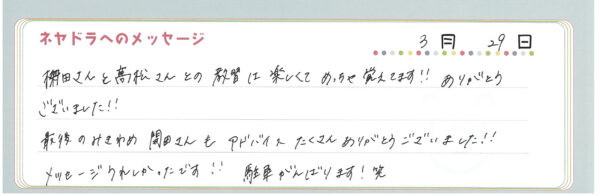 ネヤドラへのメッセージ
3月 29日
棚田さんと高松さんとの教習は楽しくてめっちゃ覚えてます!! ありがとう
ございました!!
最後のみきわめ 関田さんも アドバイス たくさんありがとうございました!!
メッセージうれしかったです!! 駐車がんばります!笑